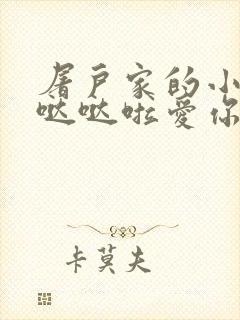 屠户家的小
哒哒啦爱你
卡莫夫